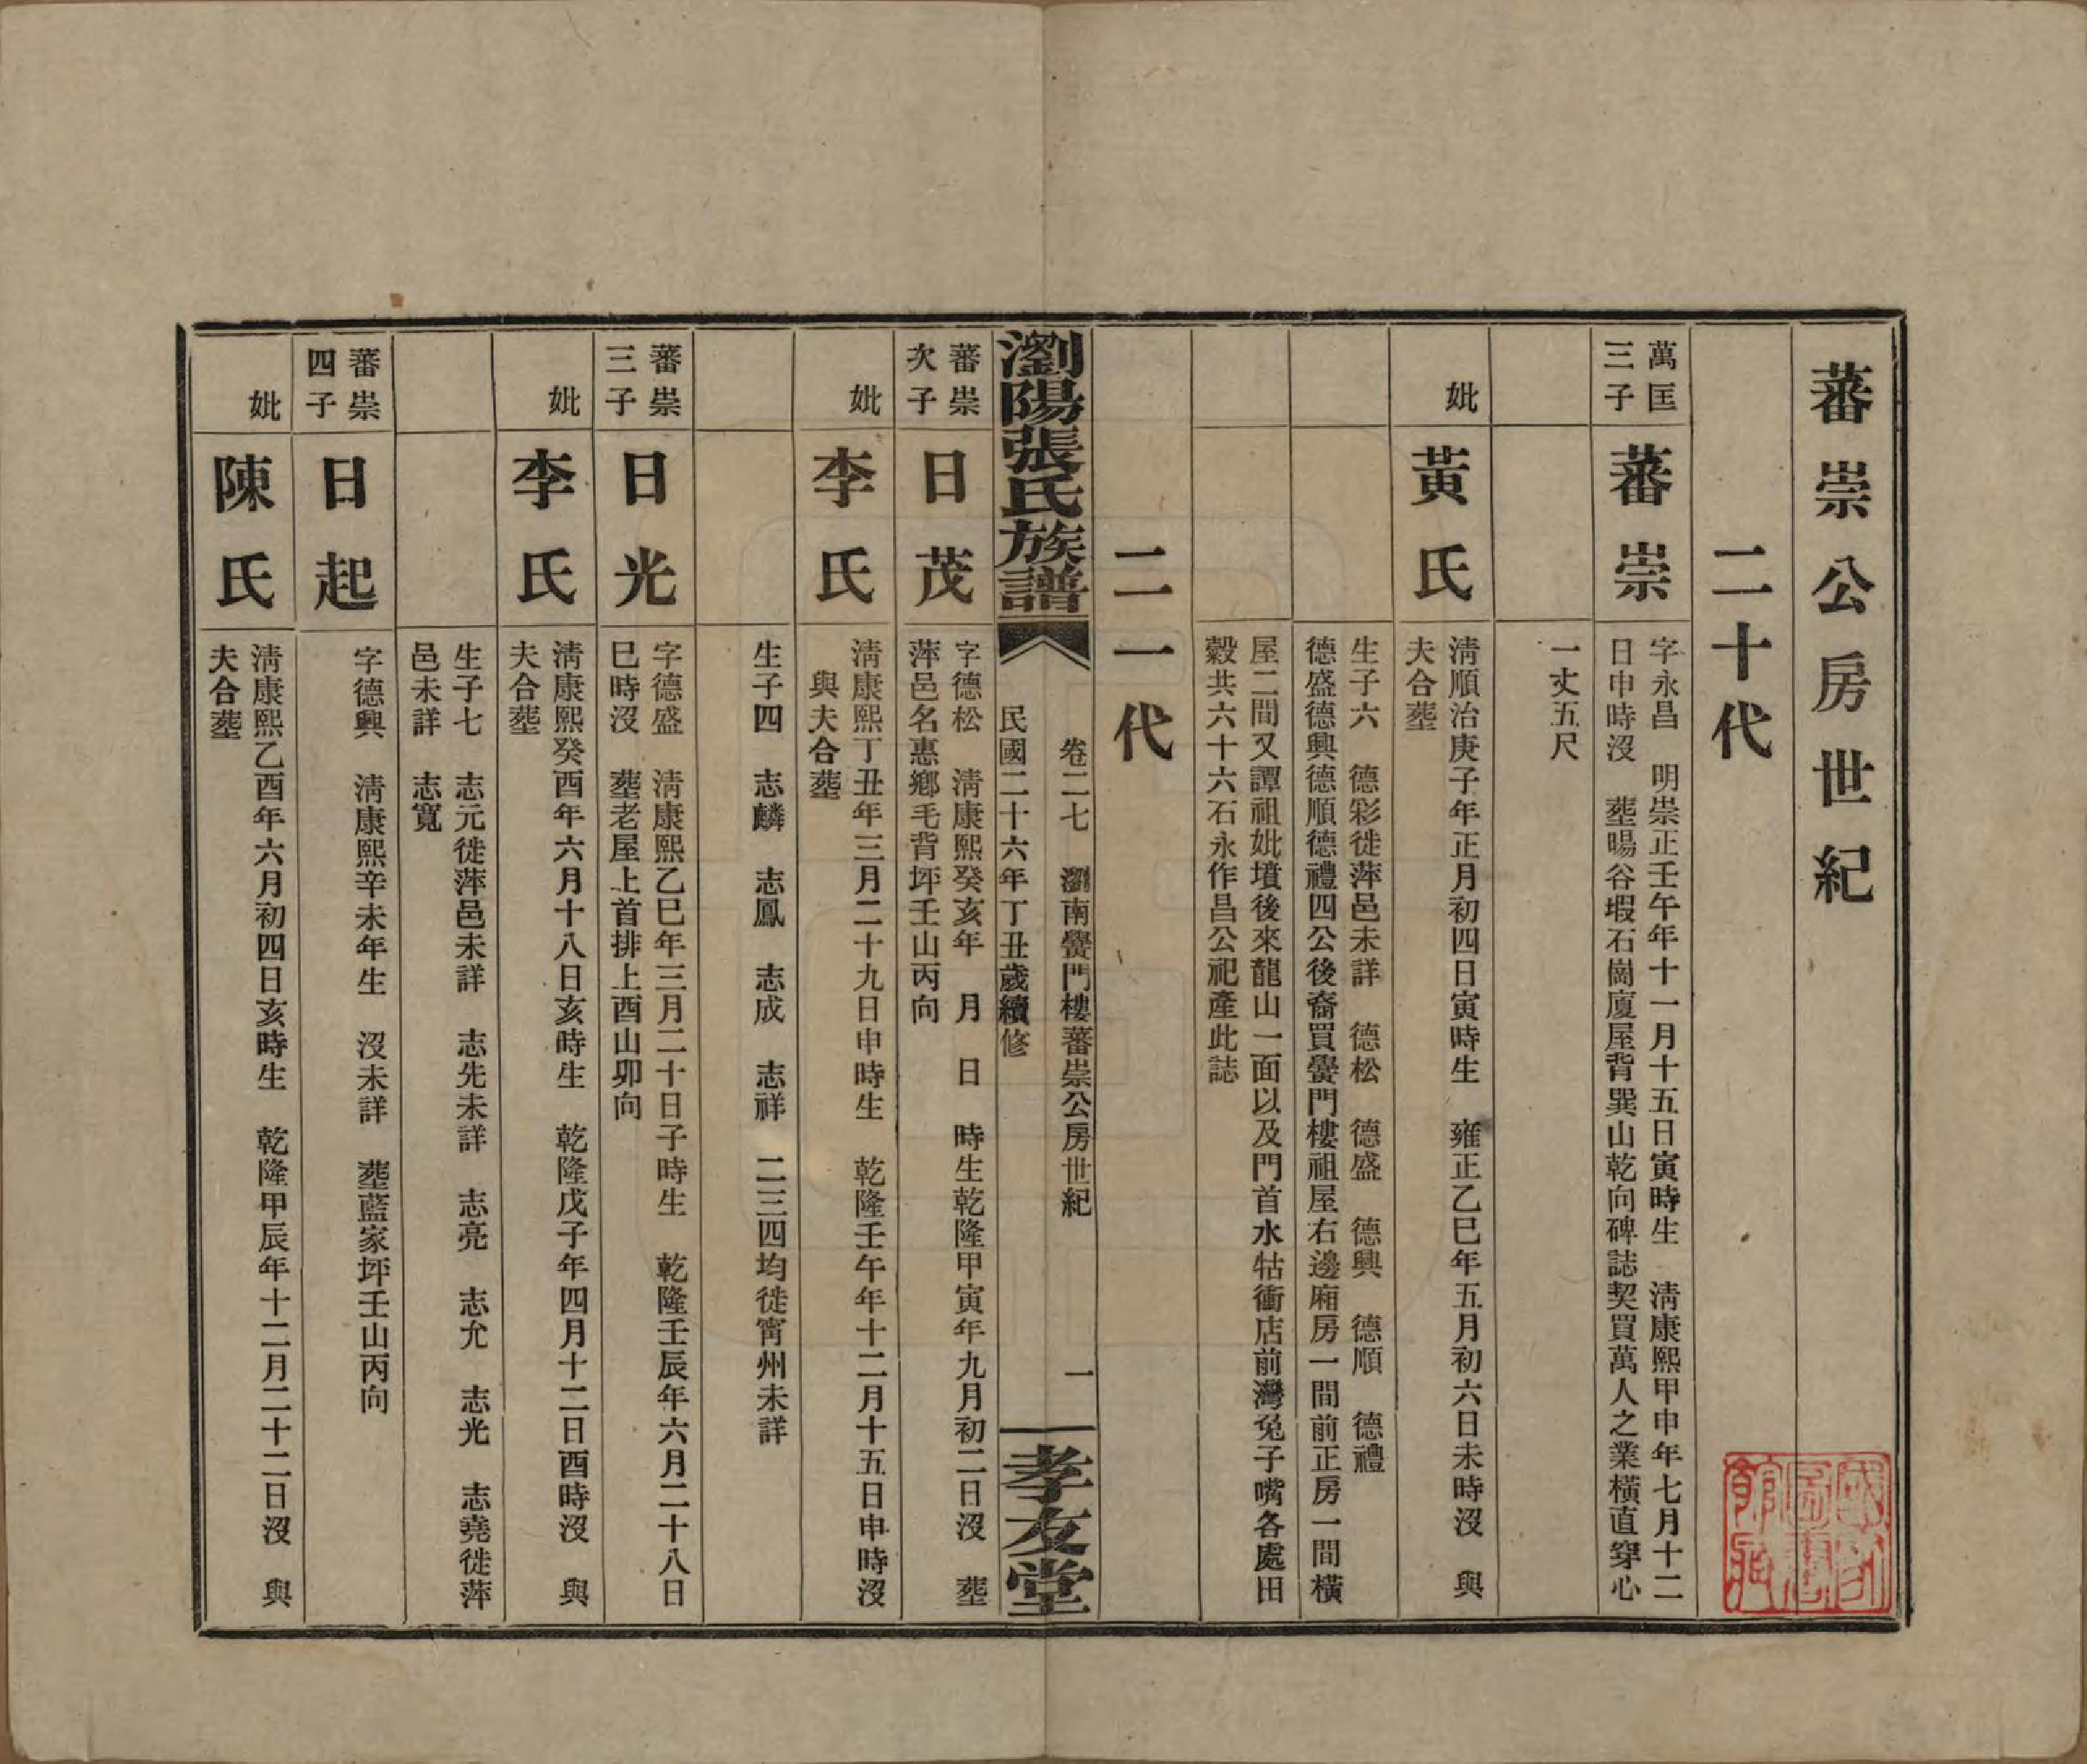 蕃崇公房世紀
二十代
萬匡
三子
蕃崇
字永昌　明崇正壬午年十一月十五日寅時生　清康熙甲申年七月十二
日申時沒　塟暘谷塅石崗廈屋背巽山乾向碑誌契買萬人之業橫直穿心
一丈五尺
妣
黃氏
清順治庚子年正月初四日寅時生　雍正乙巳年五月初六日未時沒　與
夫合塟
生子六　德彩徙萍邑未詳　德松　德盛　德興　德順　德禮
德盛德興德順德禮四公後裔買甖門樓祖屋右邊廂房一間前正房一間橫
屋二間又譚祖妣墳後來龍山一面以及門首水牯衝店前灣兔子嘴各處田
穀共六十六石永作昌公祀產此誌
二一代
瀏陽張氏族譜
卷二七　瀏南甖門樓蕃崇公房世紀　一
民國二十六年丁丑歲續修
孝友堂
蕃崇
次子
日茂
字德松　清康熙癸亥年　月　日　時生乾隆甲寅年九月初二日沒　塟
萍邑名惠鄉毛背坪壬山丙向
妣
李氏
清康熙丁丑年三月二十九日申時生　乾隆壬午年十二月十五日申時沒
與夫合塟
生子四　志麟　志鳳　志成　志祥　二三四均徙甯州未詳
蕃崇
三子
日光
字德盛　清康熙乙巳年三月二十日子時生　乾隆壬辰年六月二十八日
巳時沒　塟老屋上首排上酉山卯向
妣
李氏
清康熙癸酉年六月十八日亥時生　乾隆戊子年四月十二日酉時沒　與
夫合塟
生子七　志元徙萍邑未詳　志先未詳　志亮　志允　志光　志堯徙萍
邑未詳　志寬
蕃崇
四子
日起
字德興　清康熙辛未年生　沒未詳　塟藍家坪壬山丙向
妣
陳氏
清康熙乙酉年六月初四日亥時生　乾隆甲辰年十二月二十二日沒　與
夫合塟